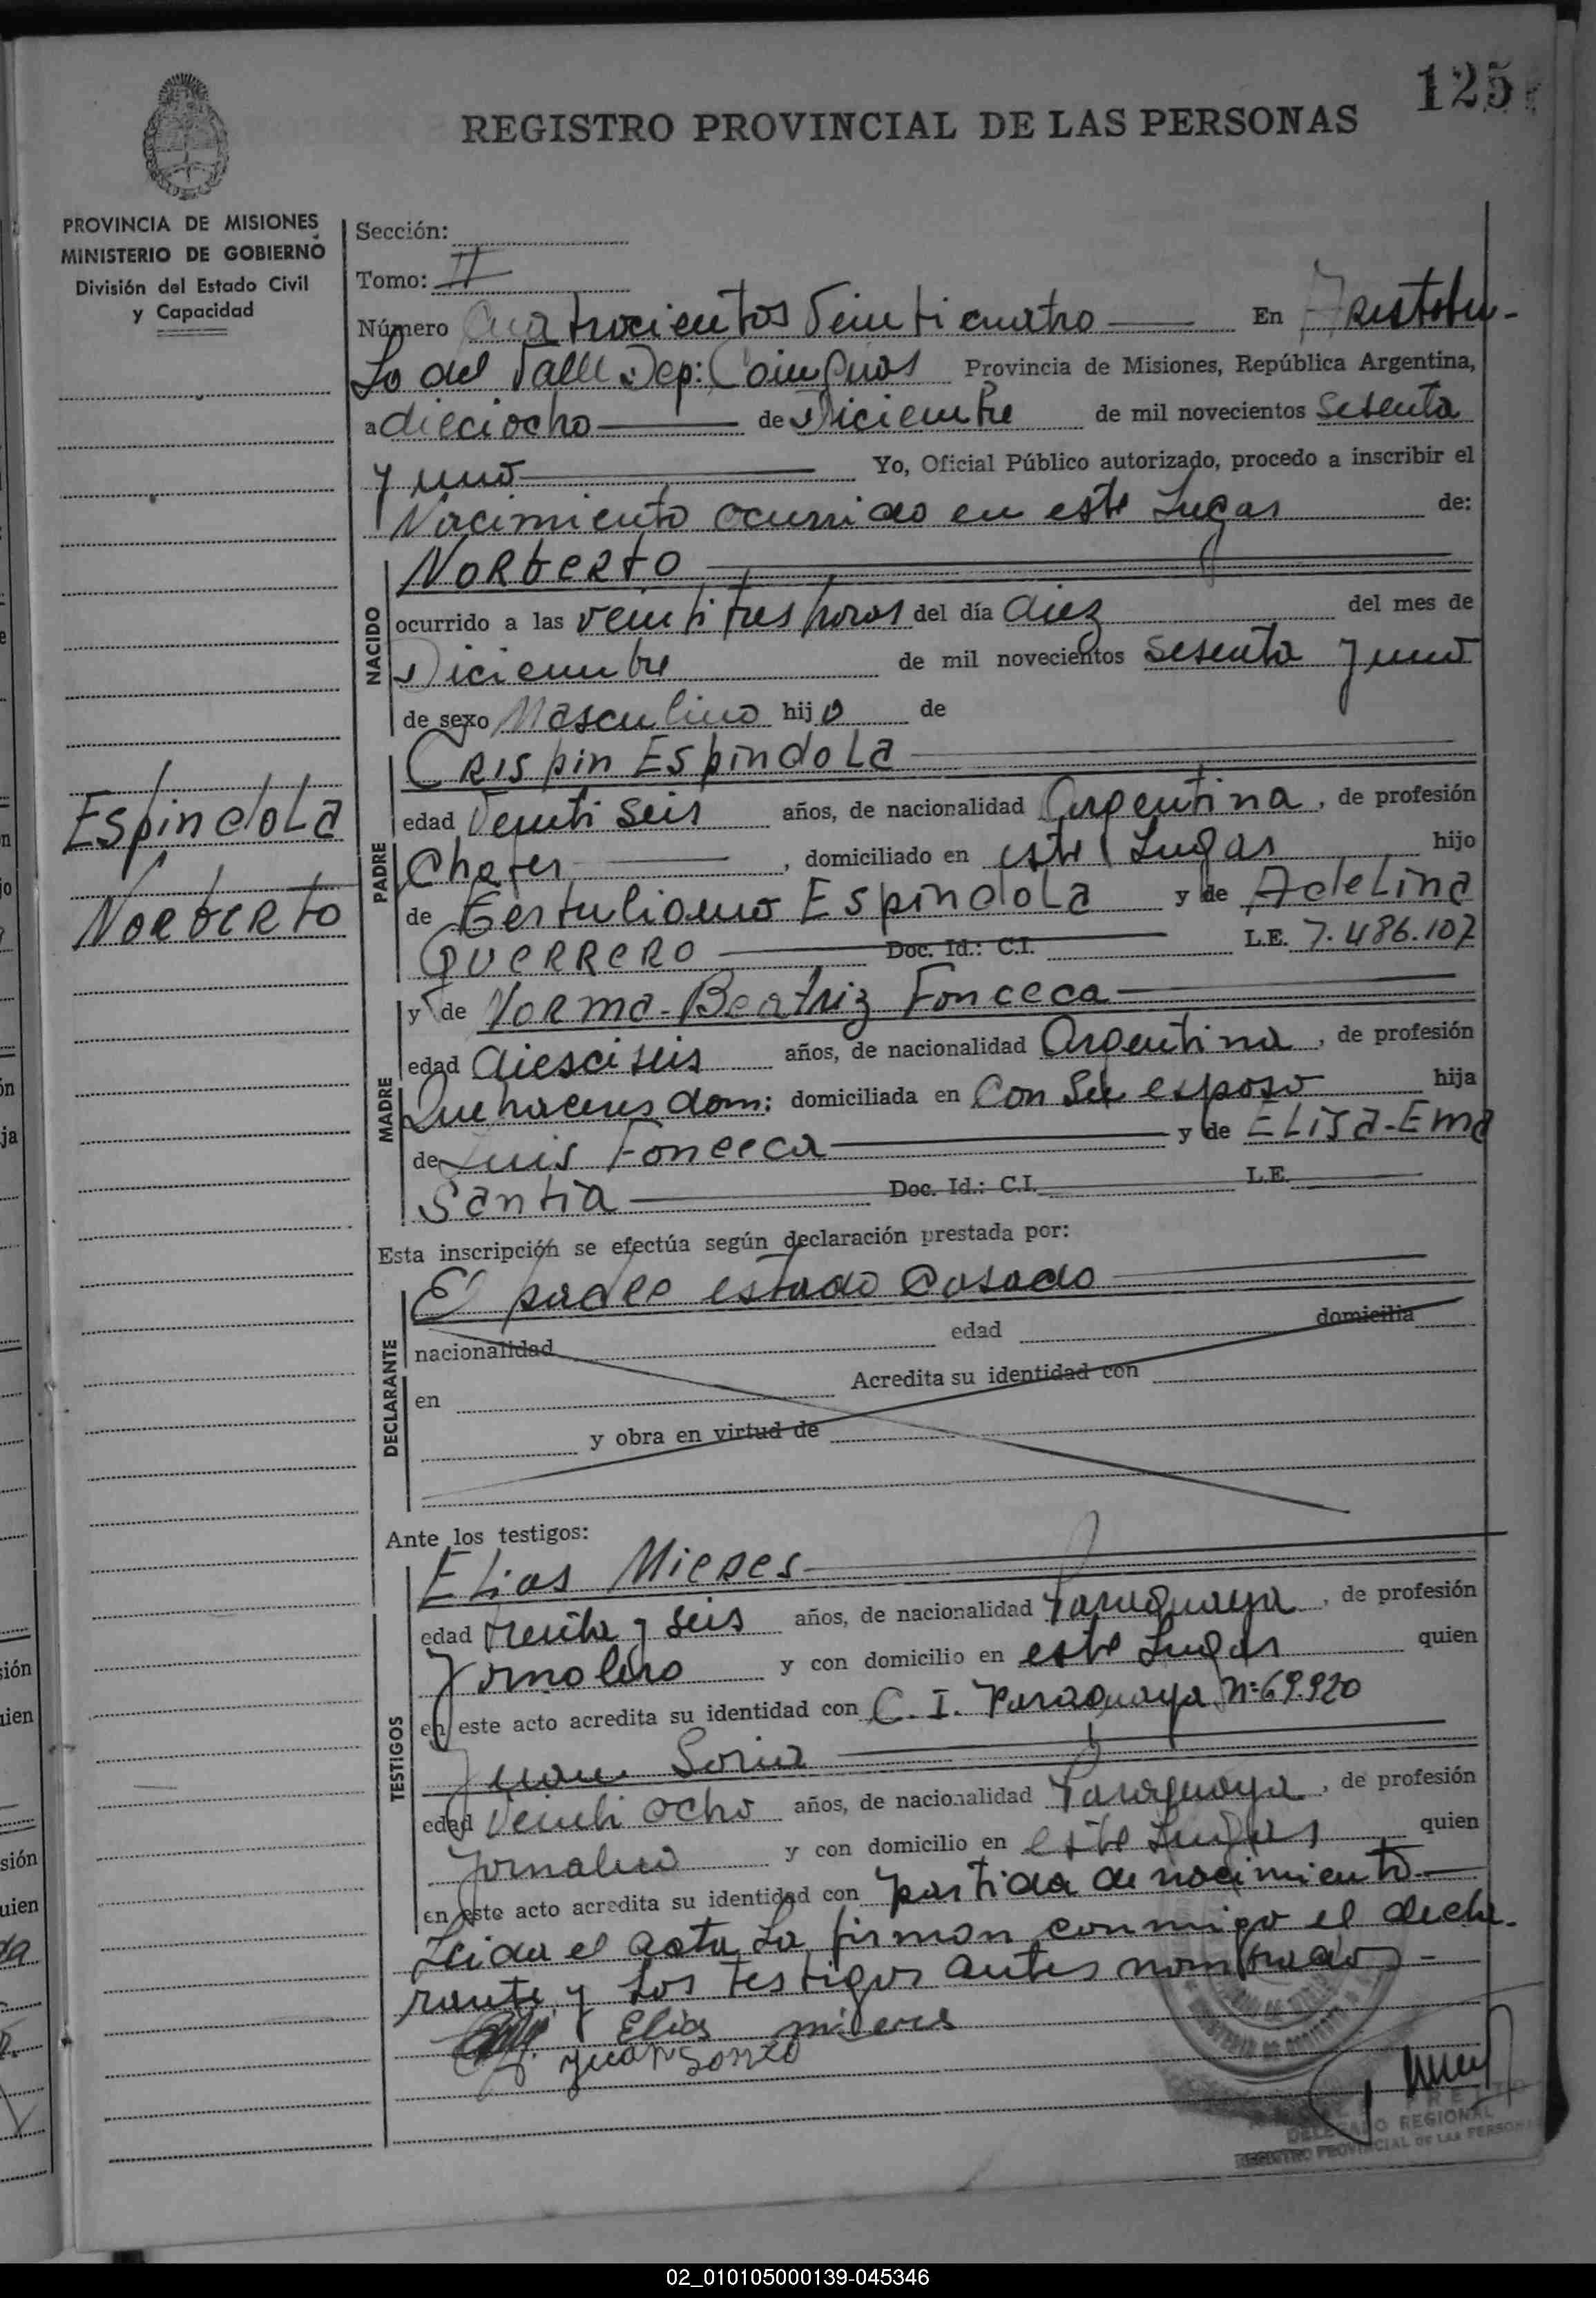 125
REGISTRO PROVINCIAL DE LAS PERSONAS
PROVINCIA DE MISIONES
MINISTERIO DE GOBIERNO
División del Estado Civil
y Capacidad
Sección:
Tomo: II
Número Cuatrocientos Veinticuatro En Aristobu-
Lo del Valle Dep: Cainguas Provincia de Misiones, República Argentina,
a dieciocho de Diciembre de mil novecientos Sesenta
y uno Yo, Oficial Público autorizado, procedo a inscribir el
Nacimiento ocurrido en este Lugar de:
NACIDO
Norberto
ocurrido a las veinti tres horas del día diez del mes de
Diciembre de mil novecientos Sesenta y uno
de sexo Masculino hijo de
Espindola
Norberto
PADRE
Crispin Espindola
edad Veinti seis años, de nacionalidad Argentina, de profesión
Chofer, domiciliado en este Lugar hijo
de Tertuliano Espindola y de Adelina
Guerrero Doc. Id.: C.I. L.E. 7.486.107
MADRE
y de Norma-Beatriz Fonceca
edad diesciseis años, de nacionalidad Argentina, de profesión
Quehaceres dom: domiciliada en Con su esposo hija
de Luis Fonceca y de Elisa-Ema
Santia Doc. Id.: C.I. L.E.
Esta inscripción se efectúa según declaración prestada por:
DECLARANTE
El padre estado Casado
nacionalidad edad domicilia
en Acredita su identidad con
y obra en virtud de
Ante los testigos:
TESTIGOS
Elias Mieres
edad treinta y seis años, de nacionalidad Paraguaya, de profesión
Jornalero y con domicilio en este Lugar quien
en este acto acredita su identidad con C. I. Paraguaya Nº 69.920
Juan Soria
edad Veinti ocho años, de nacionalidad Paraguaya, de profesión
Jornalero y con domicilio en este Lugar quien
en este acto acredita su identidad con partida de nacimiento.
Leida el acta La firman conmigo el decla-
rante y Los testigos antes nombrados -
Elias mieres
Juan
DELEGADO REGIONAL
REGISTRO PROVINCIAL DE LAS PERSONAS
02_010105000139-045346